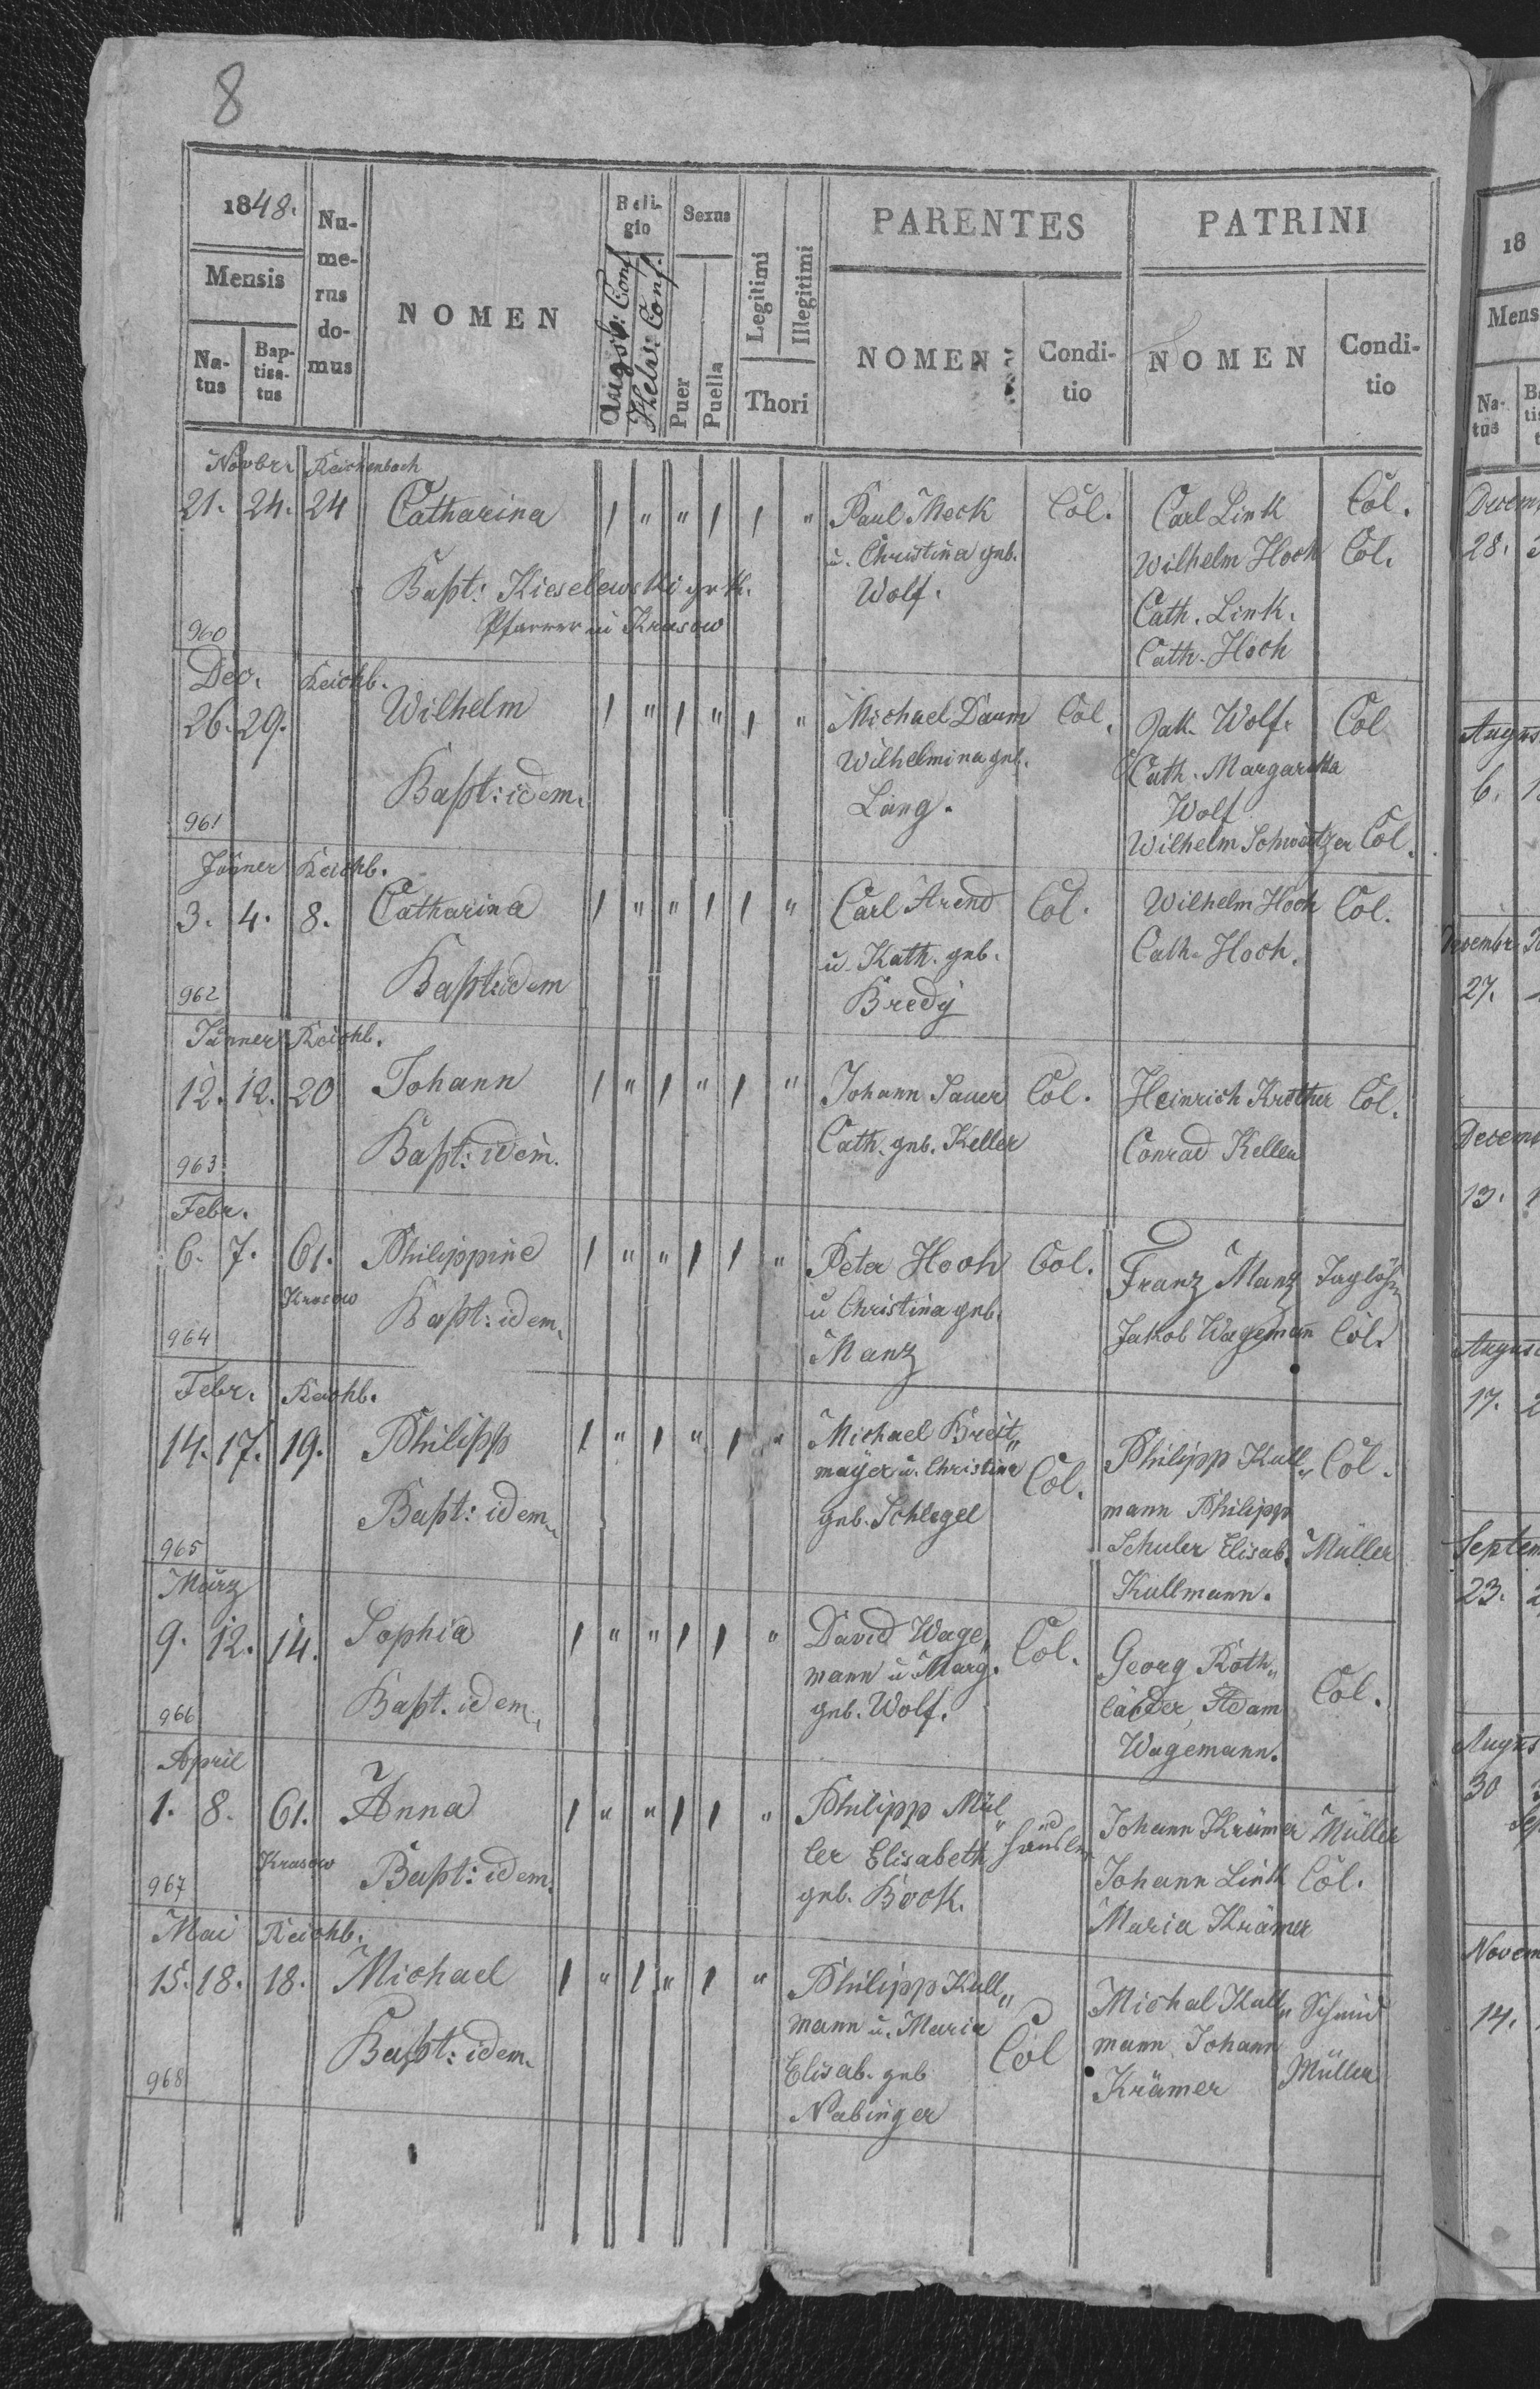 8
1848.
Mensis
Na-
tus
Bap-
tisa-
tus
Nu-
me-
rus
do-
mus
NOMEN
Reli-
gio
Augsb: Conf.
Helv: Conf.
Sexus
Puer
Puella
Legitimi
Illegitimi
Thori
PARENTES
NOMEN
Condi-
tio
PATRINI
NOMEN
Condi-
tio
Novbr. Reichenbach
21. 24. 24 Catharina 1 " " 1 1 " Paul Meck Col. Carl Link Col.
u. Christina geb. Wilhelm Hoch Col.
Bapt: Kieselewski gr k. Wolf. Cath. Link.
Pfarrer in Krasow Cath. Hoch
960
Dec. Reichb.
26. 29. Wilhelm 1 " 1 " 1 " Michael Daum Col. Jak. Wolf. Col
Wilhelmina geb. Cath. Margaretta
Bapt: idem. Lang. Wolf
961 Wilhelm Schweitzer Col.
Jänner Reichb.
3. 4. 8. Catharina 1 " " 1 1 " Carl Arend Col. Wilhelm Hoch Col.
u. Kath. geb. Cath. Hoch.
Bapt: idem Bredy
962
Jänner Reichb.
12. 12. 20 Johann 1 " 1 " 1 " Johann Sauer Col. Heinrich Kröther Col.
Bapt: idem. Cath. geb. Keller Conrad Keller
963
Febr.
6. 7. 61. Philippine 1 " " 1 1 " Peter Hoch Col. Franz Manz Taglöh
Krasow Bapt: idem. u Christina geb. Jakob Wagemann Col.
964 Manz
Febr. Reichb.
14. 17. 19. Philipp 1 " 1 " 1 " Michael Breit„ Philipp Kull„ Col.
mayer u. Christina Col. mann Philipp
Bapt: idem. geb. Schlegel Schuler Elisab. Müller
965 Kullmann.
März
9. 12. 14. Sophia 1 " " 1 1 " David Wage„ Col. Georg Roth„
mann u. Marg. länder, Adam Col.
Bapt. idem. geb. Wolf. Wagemann.
966
April
1. 8. 61. Anna 1 " " 1 1 " Philipp Mül„ Johann Krämer Müller
Krasow Bapt: idem. ler Elisabeth Häusler Johann Link Col.
967 geb. Bock. Maria Krämer
Mai Reichb.
15. 18. 18. Michael 1 " 1 " 1 " Philipp Kull„ Michal Kull„ Schmid
mann u. Maria Col mann Johann
Bapt: idem. Elisab. geb Krämer Müller
968 Nabinger
18
Mens
Na-
tus
28.
6.
27.
13.
17.
23.
30
14.